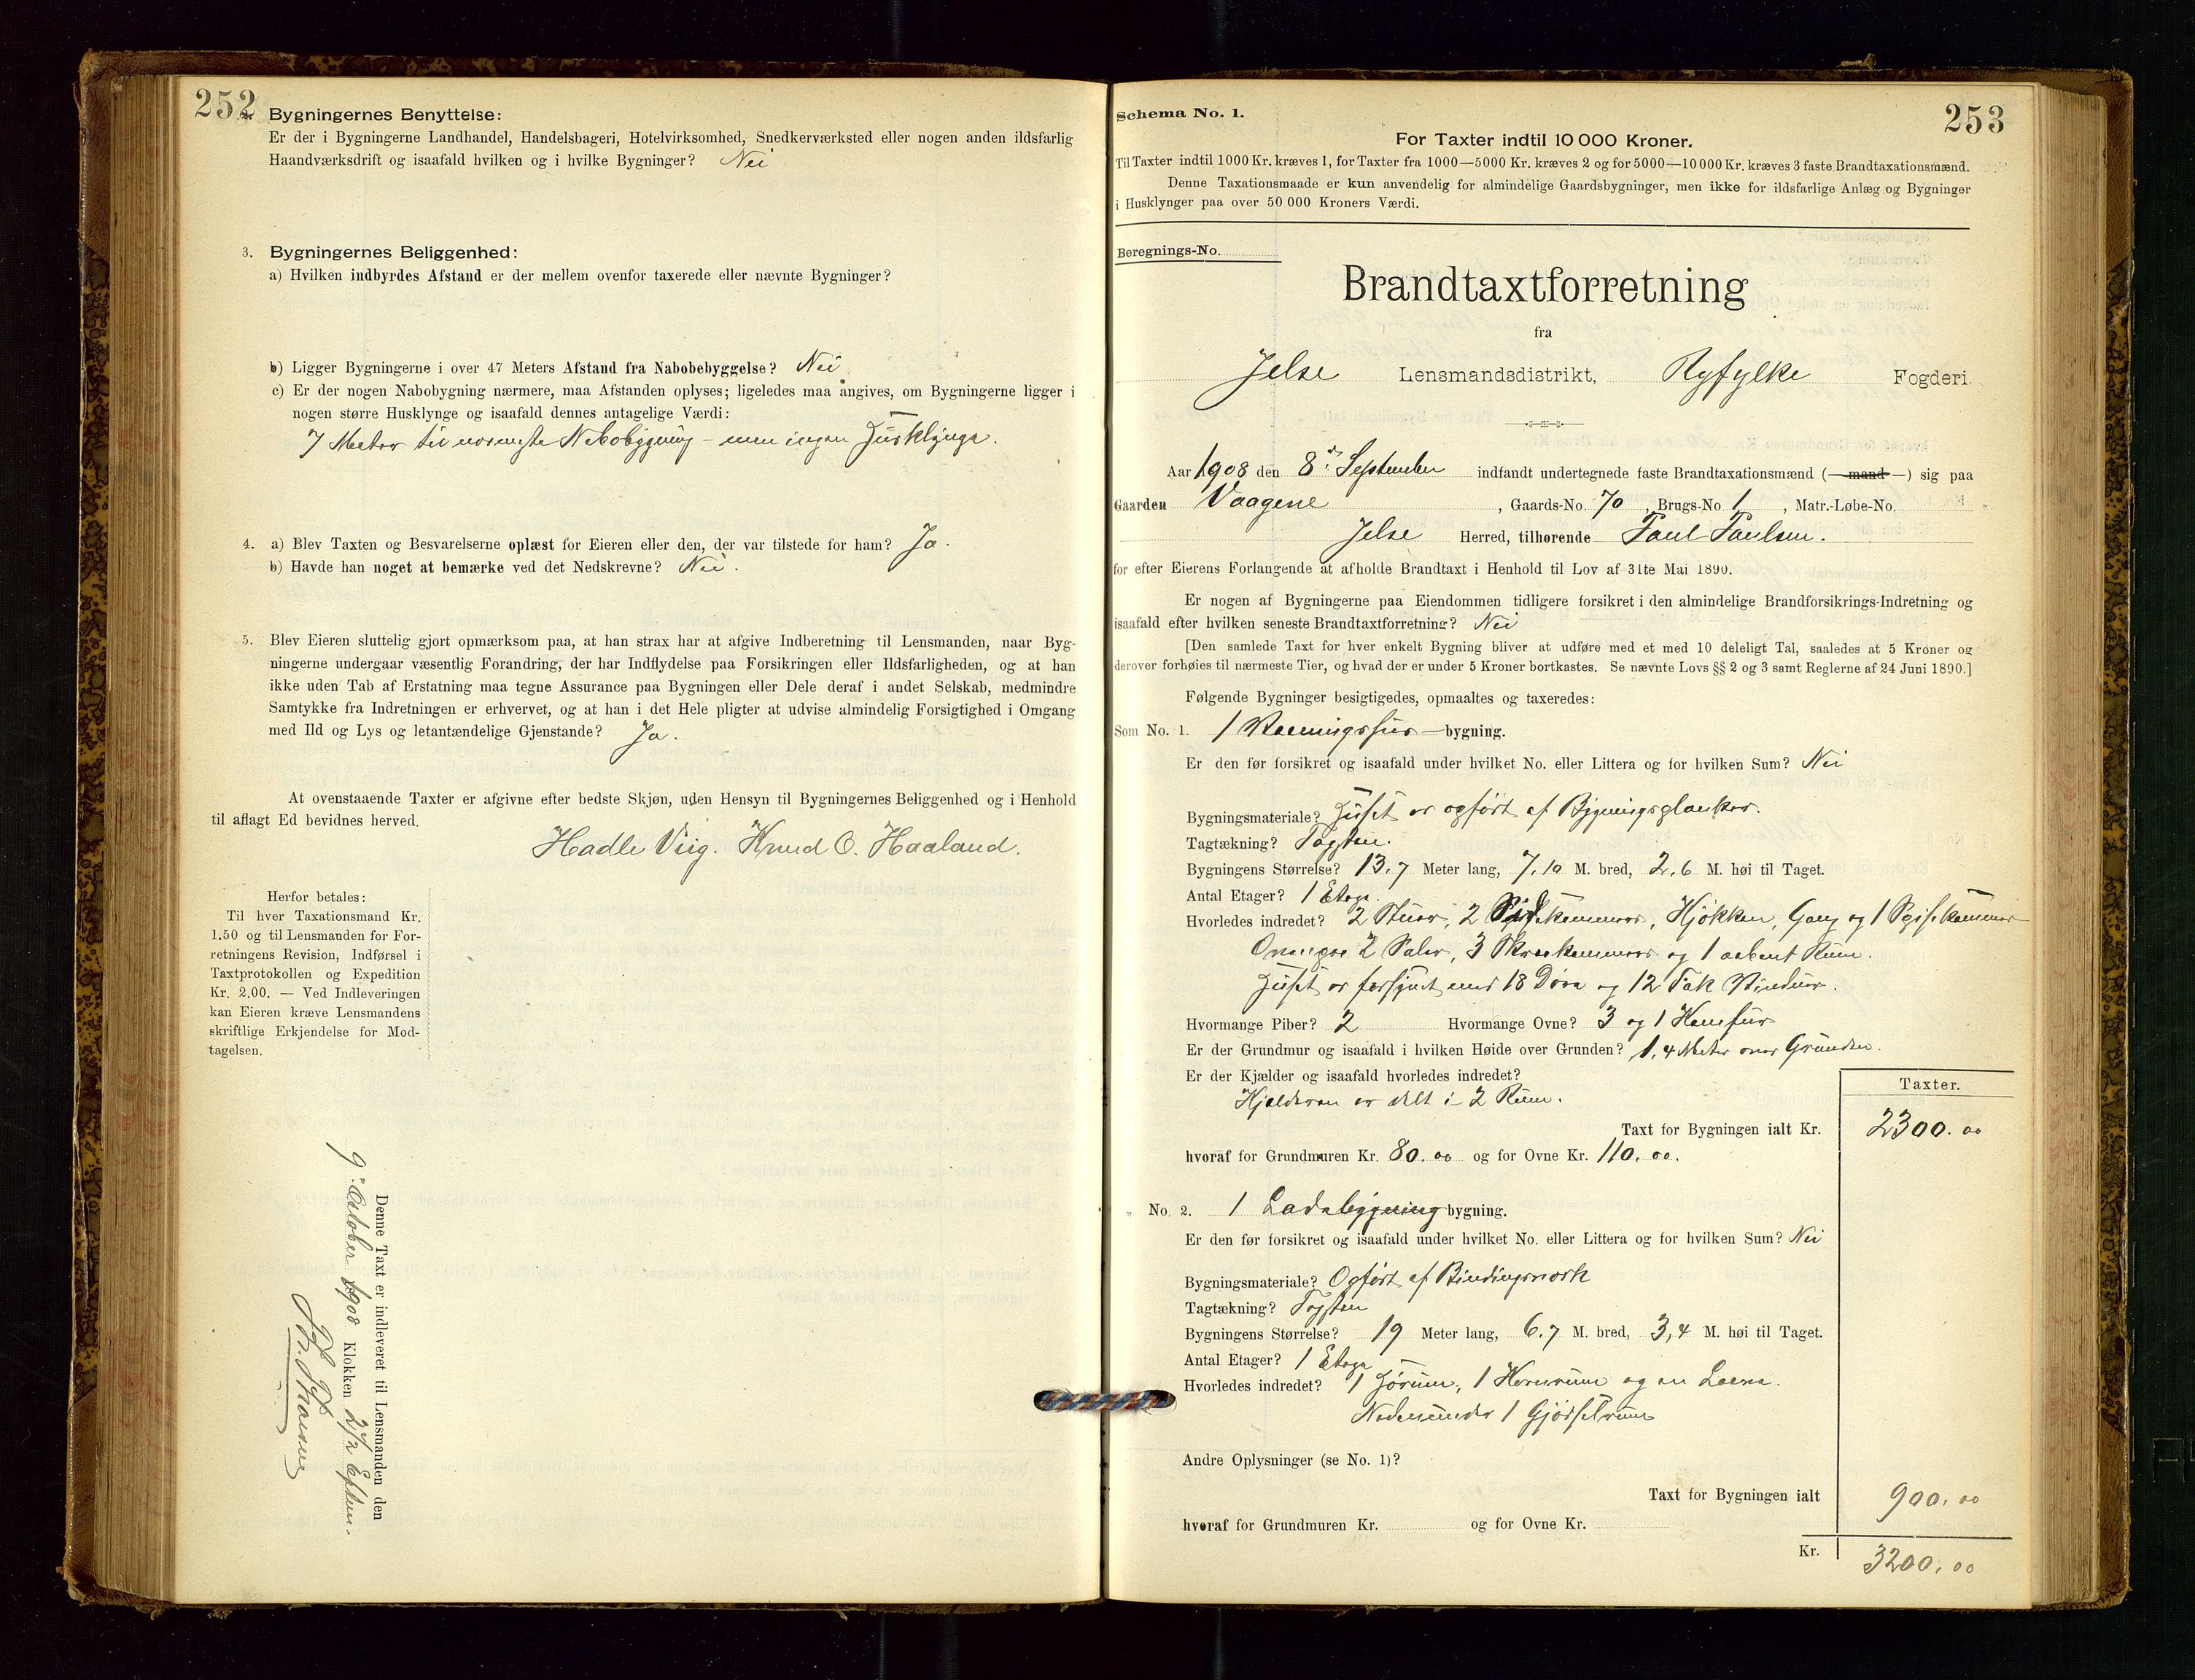 252
Bygningernes Benyttelse:
Er der i Bygningerne Landhandel, Handelsbageri, Hotelvirksomhed, Snedkerværksted eller nogen anden ildsfarlig
Haandværksdrift og isaafald hvilken og i hvilke Bygninger? Nei
3. Bygningernes Beliggenhed:
a) Hvilken indbyrdes Afstand er der mellem ovenfor taxerede eller nævnte Bygninger?
b) Ligger Bygningerne i over 47 Meters Afstand fra Nabobebyggelse? Nei
c) Er der nogen Nabobygning nærmere, maa Afstanden oplyses; ligeledes maa angives, om Bygningerne ligger i
nogen større Husklynge og isaafald dennes antagelige Værdi:
7 Meter til nærmeste Nabobygning - men ingen Husklynge.
4. a) Blev Taxten og Besvarelserne oplæst for Eieren eller den, der var tilstede for ham? Ja.
b) Havde han noget at bemærke ved det Nedskrevne? Nei.
5. Blev Eieren sluttelig gjort opmærksom paa, at han strax har at afgive Indberetning til Lensmanden, naar Byg-
ningerne undergaar væsentlig Forandring, der har Indflydelse paa Forsikringen eller Ildsfarligheden, og at han
ikke uden Tab af Erstatning maa tegne Assurance paa Bygningen eller Dele deraf i andet Selskab, medmindre
Samtykke fra Indretningen er erhvervet, og at han i det Hele pligter at udvise almindelig Forsigtighed i Omgang
med Ild og Lys og letantændelige Gjenstande? Ja.
At ovenstaaende Taxter er afgivne efter bedste Skjøn, uden Hensyn til Bygningernes Beliggenhed og i Henhold
til aflagt Ed bevidnes herved.
Hadle Viig. Knud O. Haaland.
Herfor betales:
Til hver Taxationsmand Kr.
1.50 og til Lensmanden for For-
retningens Revision, Indførsel i
Taxtprotokollen og Expedition
Kr. 2.00. — Ved Indleveringen
kan Eieren kræve Lensmandens
skriftlige Erkjendelse for Mod-
tagelsen.
Denne Taxt er indleveret til Lensmanden den
9. October 1908 Klokken 2 1/2 Efterm.
253
Schema No. 1.
For Taxter indtil 10 000 Kroner.
Til Taxter indtil 1000 Kr. kræves 1, for Taxter fra 1000—5000 Kr. kræves 2 og for 5000—10 000 Kr. kræves 3 faste Brandtaxationsmænd.
Denne Taxationsmaade er kun anvendelig for almindelige Gaardsbygninger, men ikke for ildsfarlige Anlæg og Bygninger
i Husklynger paa over 50 000 Kroners Værdi.
Beregnings-No.
Brandtaxtforretning
fra
Jelse Lensmandsdistrikt, Ryfylke Fogderi.
Aar 1908 den 8de September indfandt undertegnede faste Brandtaxationsmænd (—mand—) sig paa
Gaarden Vaagene, Gaards-No. 70, Brugs-No. 1, Matr.-Løbe-No.
Jelse Herred, tilhørende Paul Paulsen.
for efter Eierens Forlangende at afholde Brandtaxt i Henhold til Lov af 31te Mai 1890.
Er nogen af Bygningerne paa Eiendommen tidligere forsikret i den almindelige Brandforsikrings-Indretning og
isaafald efter hvilken seneste Brandtaxtforretning? Nei
[Den samlede Taxt for hver enkelt Bygning bliver at udføre med et med 10 deleligt Tal, saaledes at 5 Kroner og
derover forhøies til nærmeste Tier, og hvad der er under 5 Kroner bortkastes. Se nævnte Lovs §§ 2 og 3 samt Reglerne af 24 Juni 1890.]
Følgende Bygninger besigtigedes, opmaaltes og taxeredes:
Som No. 1. 1 Vaaningshus-bygning.
Er den før forsikret og isaafald under hvilket No. eller Littera og for hvilken Sum? Nei
Bygningsmateriale? Huset er opført af Bygningsplanker.
Tagtækning? Tagsten.
Bygningens Størrelse? 13,7 Meter lang, 7,10 M. bred, 2,6 M. høi til Taget.
Antal Etager? 1 Etage.
Hvorledes indredet? 2 Stuer, 2 Sidekammers, Kjøkken, Gang og 1 Spisekammer
Ovenpaa 2 Saler, 3 Skraakammers og 1 aabent Rum.
Huset er forsynet med 18 Døre og 12 Fak Vinduer.
Hvormange Piber? 2 Hvormange Ovne? 3 og 1 Komfur
Er der Grundmur og isaafald i hvilken Høide over Grunden? 1,4 Meter over Grunden.
Er der Kjælder og isaafald hvorledes indredet?
Kjælderen er delt i 2 Rum.
Taxter.
Taxt for Bygningen ialt Kr. 2300.00
hvoraf for Grundmuren Kr. 80.00 og for Ovne Kr. 110.00.
" No. 2. 1 Ladebygning bygning.
Er den før forsikret og isaafald under hvilket No. eller Littera og for hvilken Sum? Nei
Bygningsmateriale? Opført af Bindingsverk
Tagtækning? Tagsten
Bygningens Størrelse? 19 Meter lang, 6,7 M. bred, 3,4 M. høi til Taget.
Antal Etager? 1 Etage
Hvorledes indredet? 1 Hørum, 1 Kornrum og en Laave.
Nedenunder 1 Gjødselrum
Andre Oplysninger (se No. 1)?
Taxt for Bygningen ialt 900.00
hvoraf for Grundmuren Kr. og for Ovne Kr.
Kr. 3200.00